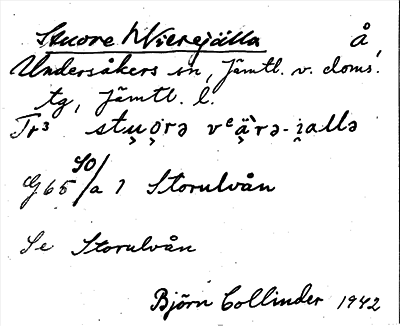 Stuore Vierejálla å
Undersåkers sn, Jämtl. v. doms.
tg, Jämtl. l.
Tr³ stu̯o̯rə vᵉä̯̀rə-i̯allə
G65 50/a 1 Storulvån
Se Storulvån
Björn Collinder 1942